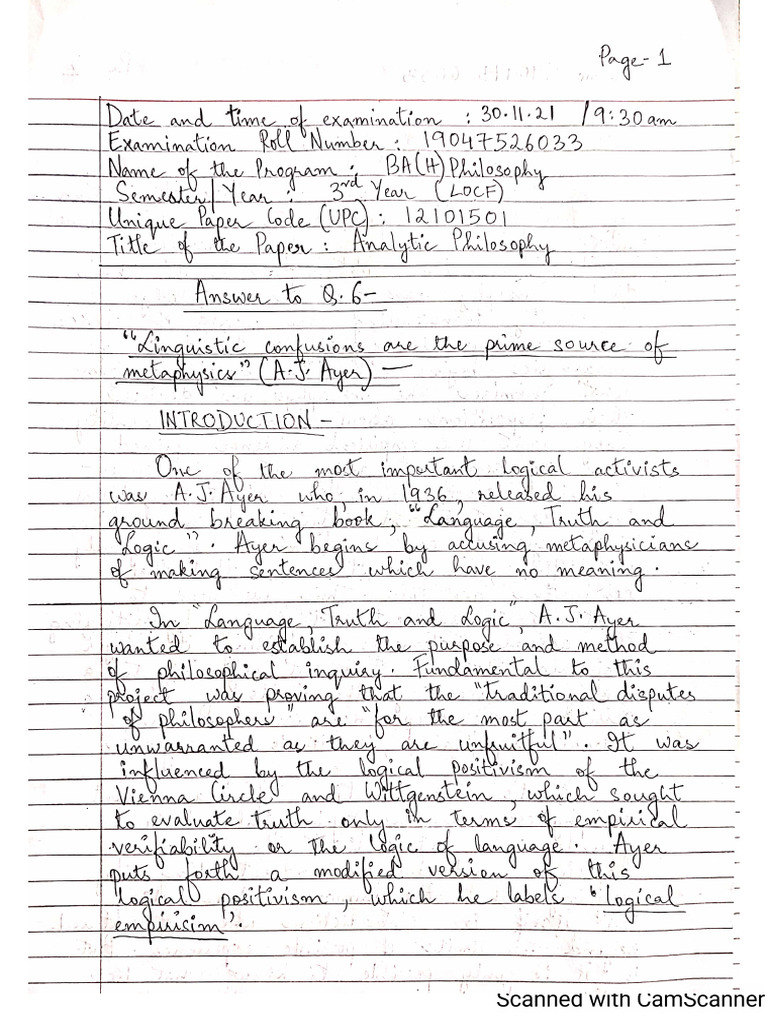 Page-1
Date and time of examination : 30.11.21 / 9:30am
Examination Roll Number : 19047526033
Name of the Program : BA(H) Philosophy
Semester/Year : 3rd Year (LOCF)
Unique Paper Code (UPC) : 12101501
Title of the Paper : Analytic Philosophy
Answer to Q.6-
"Linguistic confusions are the prime source of
metaphysics" (A.J. Ayer) —
INTRODUCTION -
One of the most important logical activists
was A.J. Ayer who, in 1936, released his
ground breaking book, "Language, Truth and
Logic". Ayer begins by accusing metaphysicians
of making sentences which have no meaning.
In "Language, Truth and Logic", A.J. Ayer
wanted to establish the purpose and method
of philosophical inquiry. Fundamental to this
project was proving that the "traditional disputes
of philosophers" are "for the most part as
unwarranted as they are unfruitful". It was
influenced by the logical positivism of the
Vienna Circle and Wittgenstein, which sought
to evaluate truth only in terms of empirical
verifiability or the logic of language. Ayer
puts forth a modified version of this
logical positivism, which he labels 'logical
empirisim'.
Scanned with CamScanner